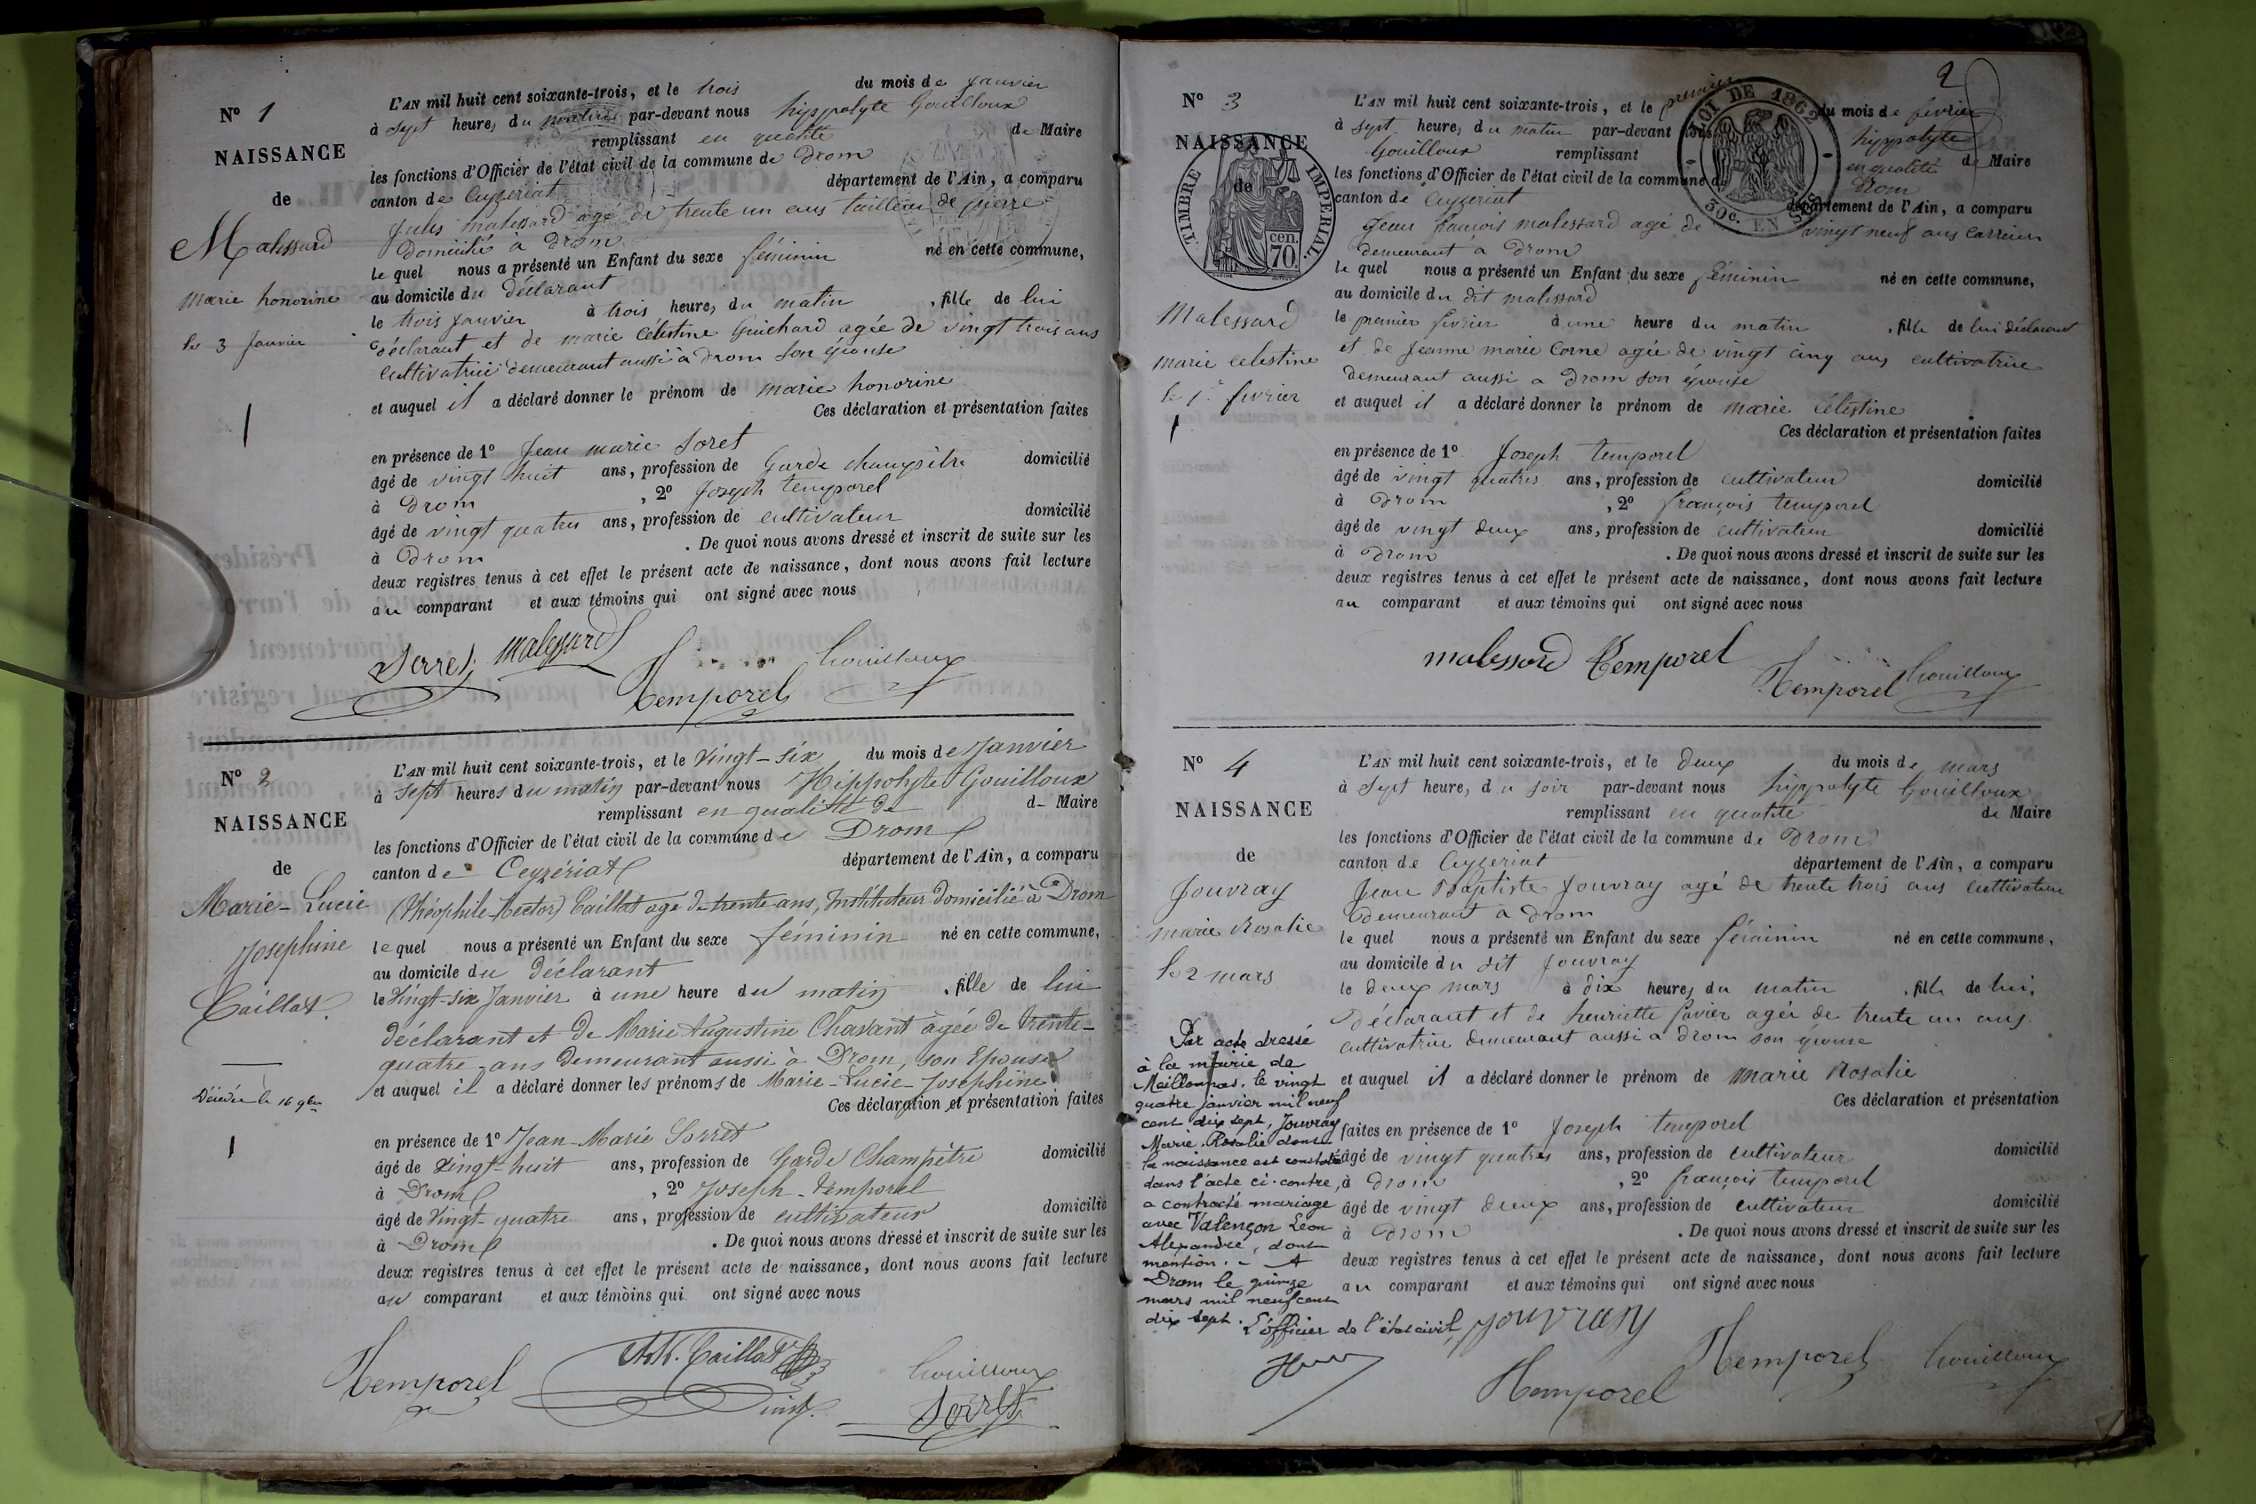 N° 1
NAISSANCE
de
Malessard
marie honorine
le 3 Janvier
L'AN mil huit cent soixante-trois, et le trois du mois de janvier
à sept heures du par-devant nous hyppolyte Gouilloux
remplissant en qualité de Maire
les fonctions d'Officier de l'état civil de la commune de Drom
canton de Ceyzeriat département de l'Ain, a comparu
Jules malessard agé de trente un ans tailleur de pierre
Domicilié a Drom
le quel nous a présenté un Enfant du sexe féminin né en cette commune,
au domicile du déclarant
le trois janvier à trois heures du matin , fille de lui
déclarant et de marie Célestine Guichard agée de vingt trois ans
cultivatrice demeurant aussi à drom son épouse
et auquel il a déclaré donner le prénom de marie honorine
Ces déclaration et présentation faites
en présence de 1° Jean marie Soret
âgé de vingt huit ans, profession de Garde champêtre domicilié
à Drom , 2° Joseph temporel
âgé de vingt quatres ans, profession de cultivateur domicilié
à Drom . De quoi nous avons dressé et inscrit de suite sur les
deux registres tenus à cet effet le présent acte de naissance, dont nous avons fait lecture
au comparant et aux témoins qui ont signé avec nous
malessard
Temporel Gouilloux
N° 2
NAISSANCE
de
Marie-Lucie
Josephine
Caillat.
Décédée le 16 9bre
L'AN mil huit cent soixante-trois, et le Vingt-six du mois de Janvier
à sept heures du matin par-devant nous Hippolyte Gouilloux
remplissant en qualité de d- Maire
les fonctions d'Officier de l'état civil de la commune de Drom
canton de Ceyzériat département de l'Ain, a comparu
(Théophile-Hector) Caillat agé de trente ans, Instituteur domicilié à Drom
le quel nous a présenté un Enfant du sexe féminin né en cette commune,
au domicile du déclarant
le Vingt-six Janvier à une heure du matin , fille de lui
déclarant et de Marie Augustine Chavant âgée de trente-
quatre ans demeurant aussi à Drom, son Epouse
et auquel il a déclaré donner les prénoms de Marie-Lucie-Joséphine.
Ces déclaration et présentation faites
en présence de 1° Jean-Marie Sorret
âgé de Vingt-huit ans, profession de Garde Champêtre domicilié
à Drom , 2° Joseph-temporel
âgé de Vingt-quatre ans, profession de cultivateur domicilié
à Drom . De quoi nous avons dressé et inscrit de suite sur les
deux registres tenus à cet effet le présent acte de naissance, dont nous avons fait lecture
au comparant et aux témoins qui ont signé avec nous
Temporel Caillat Gouilloux
Sorret
2
N° 3
NAISSANCE
de
TIMBRE IMPÉRIAL.
cen.
70.
LOI DE 1862
30c. EN SUS
Malessard
marie celestine
le 1er fevrier
L'AN mil huit cent soixante-trois, et le premier du mois de fevrier
à sept heures du matin par-devant nous hyppolyte
Gouilloux remplissant en qualité de Maire
les fonctions d'Officier de l'état civil de la commune de Drom
canton de Ceyzeriat département de l'Ain, a comparu
Jean francois malessard agé de vingt neuf ans Carrier
demeurant a Drom
le quel nous a présenté un Enfant du sexe féminin né en cette commune,
au domicile du dit malessard
le premier fevrier à une heure du matin , fille de lui déclarant
et de Jeanne marie Corne agée de vingt cinq ans cultivatrice
demeurant aussi a Drom son épouse
et auquel il a déclaré donner le prénom de marie célestine
Ces déclaration et présentation faites
en présence de 1° Joseph temporel
âgé de vingt quatres ans, profession de cultivateur domicilié
à Drom , 2° françois temporel
âgé de vingt deux ans, profession de cultivateur domicilié
à Drom . De quoi nous avons dressé et inscrit de suite sur les
deux registres tenus à cet effet le présent acte de naissance, dont nous avons fait lecture
au comparant et aux témoins qui ont signé avec nous
malessard Temporel
Temporel Gouilloux
N° 4
NAISSANCE
de
Jouvray
marie Rosalie
le 2 mars
Par acte dressé
à la mairie de
Meillonnas, le vingt
quatre janvier mil neuf
cent dix sept, Jouvray
Marie-Rosalie dont
la naissance est constatée
dans l'acte ci-contre,
a contracté mariage
avec Valençon Léon
Alexandre, dont
mention. - A
Drom le quinze
mars mil neuf cent
dix sept.
L'officier de l'état civil,
L'AN mil huit cent soixante-trois, et le deux du mois de mars
à sept heures, du soir par-devant nous hyppolyte Gouilloux
remplissant en qualité de Maire
les fonctions d'Officier de l'état civil de la commune de Drom
canton de Ceyzeriat département de l'Ain, a comparu
Jean Baptiste Jouvray agé de trente trois ans cultivateur
demeurant a Drom
le quel nous a présenté un Enfant du sexe féminin né en cette commune,
au domicile du dit Jouvray
le deux mars à dix heures du matin , fille de lui,
déclarant et de henriette favier agée de trente un ans
cultivatrice demeurant aussi a drom son épouse
et auquel il a déclaré donner le prénom de marie Rosalie
Ces déclaration et présentation
faites en présence de 1° Joseph temporel
âgé de vingt quatres ans, profession de cultivateur domicilié
à Drom , 2° françois temporel
âgé de vingt deux ans, profession de cultivateur domicilié
à Drom . De quoi nous avons dressé et inscrit de suite sur les
deux registres tenus à cet effet le présent acte de naissance, dont nous avons fait lecture
au comparant et aux témoins qui ont signé avec nous
jouvray
Temporel Temporel Gouilloux